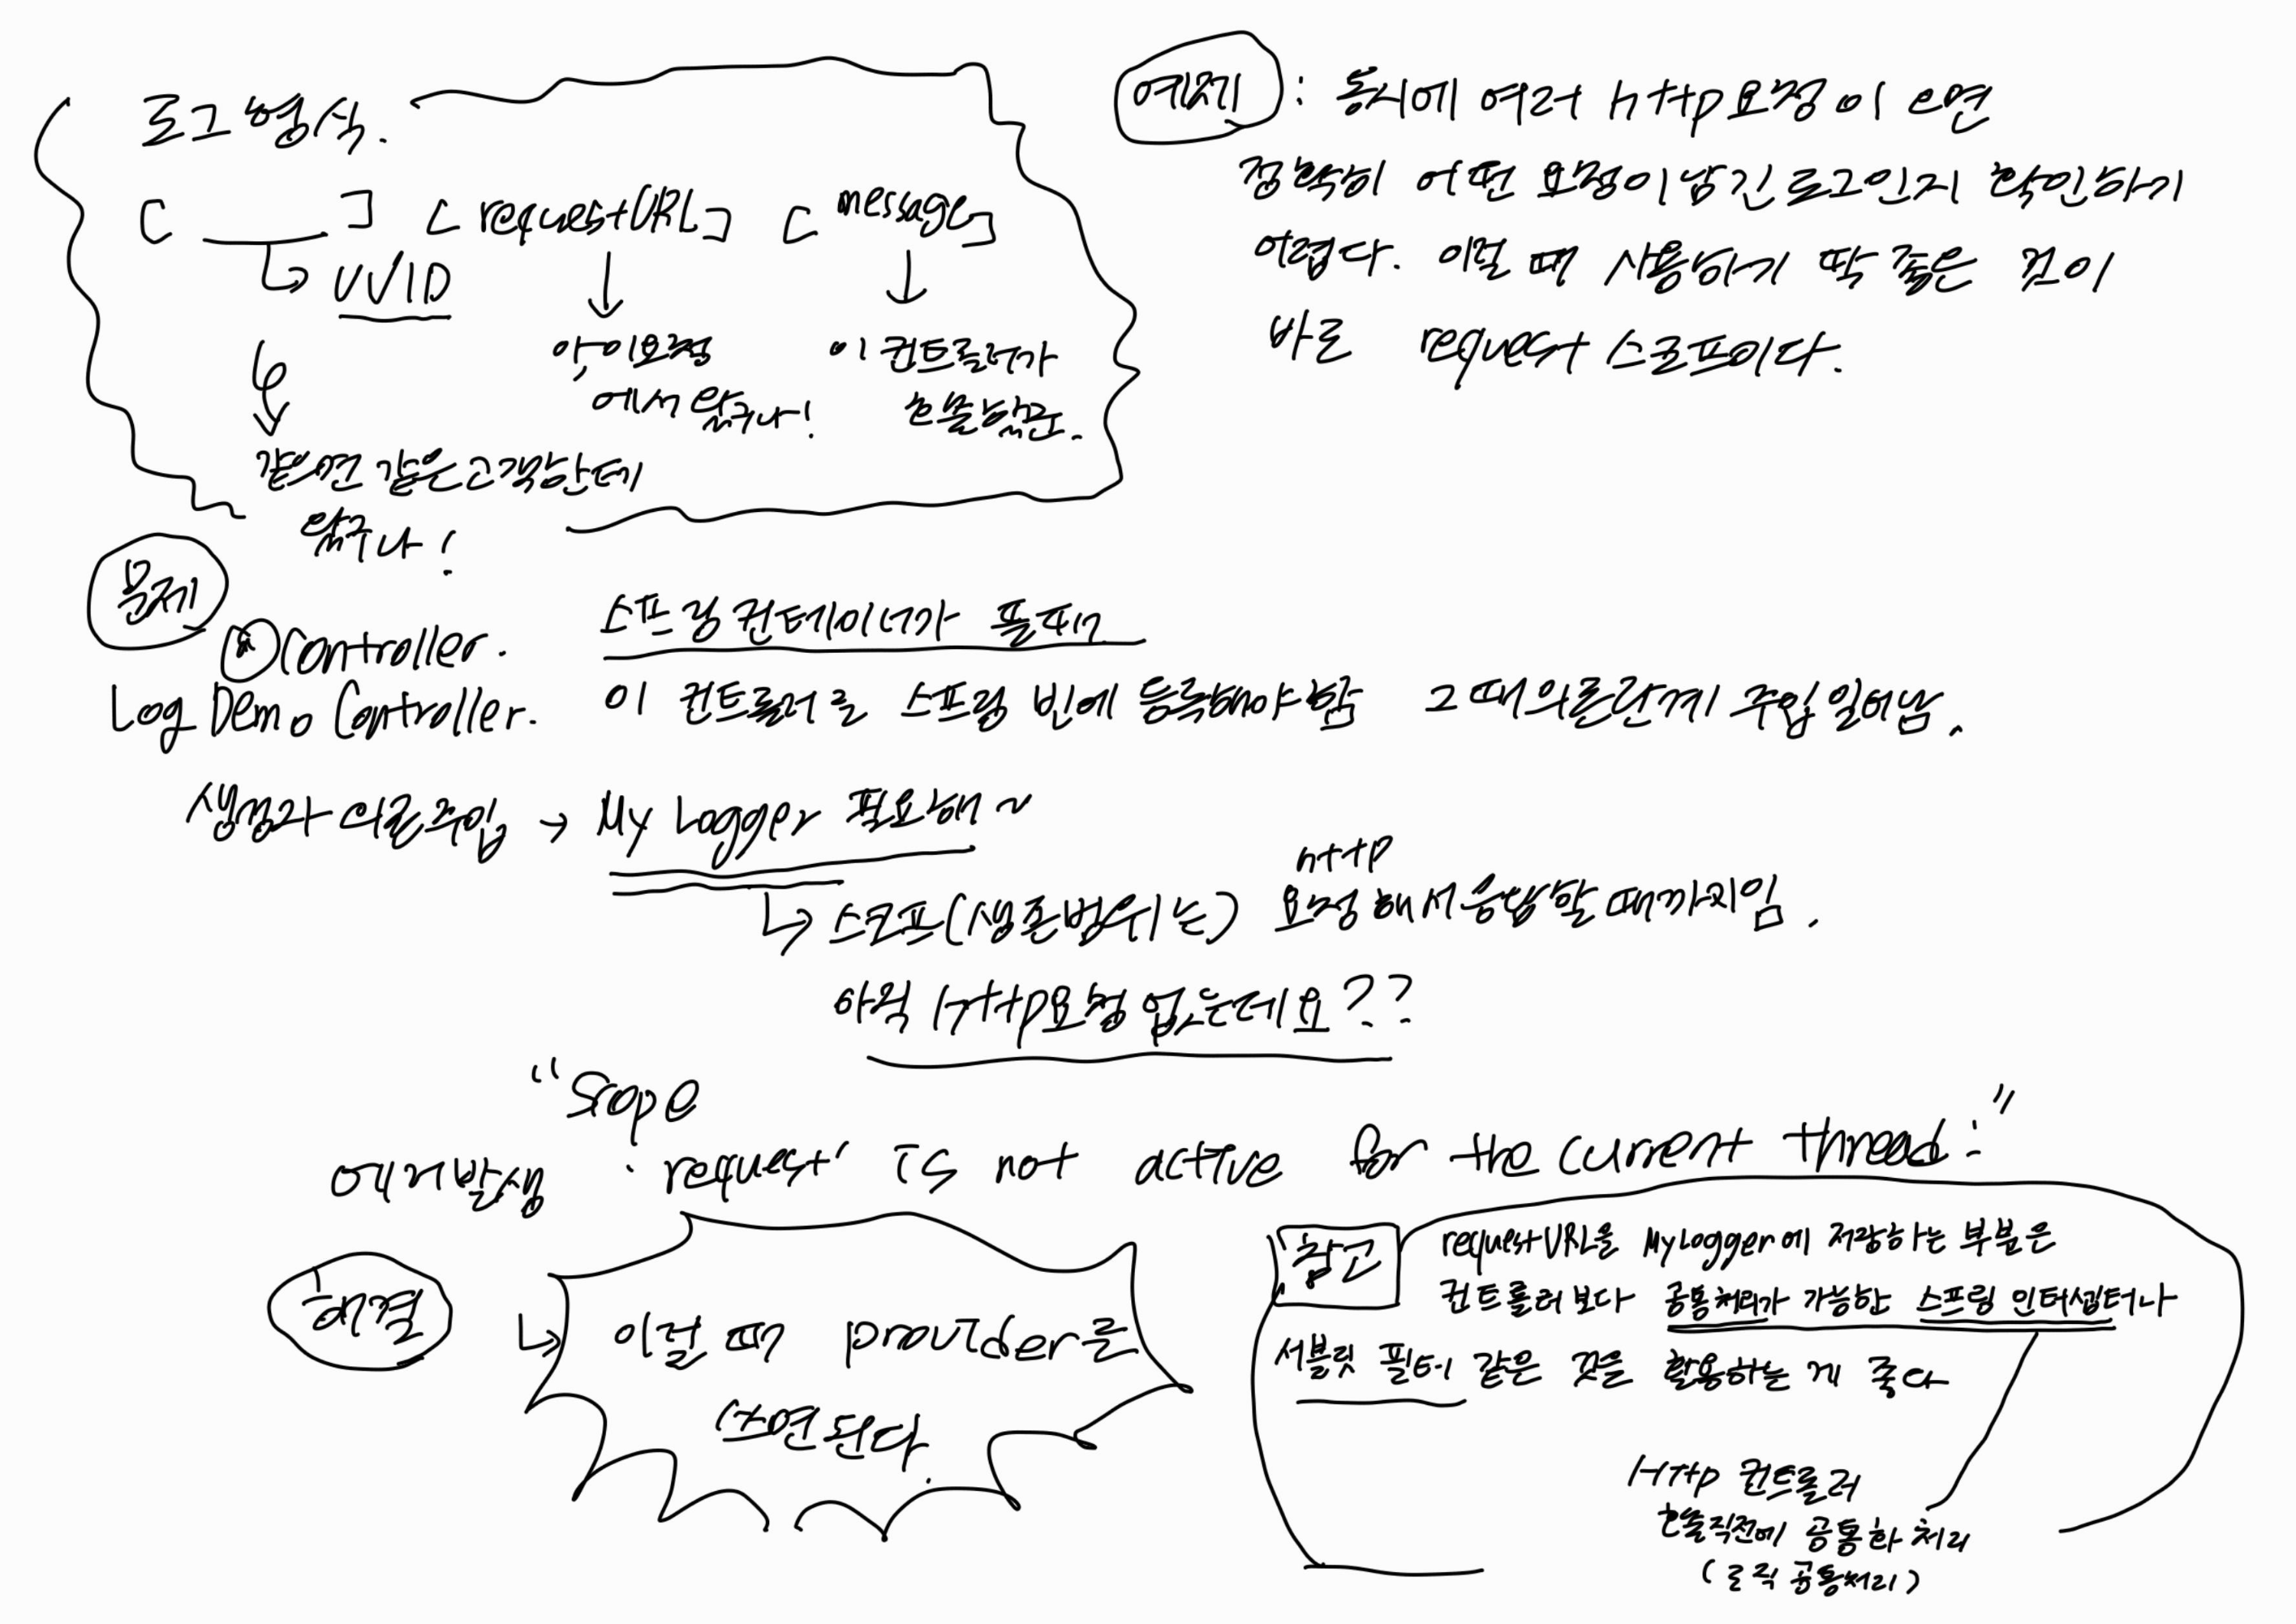 로그 형식.
[ ____ ] [ requestURL ] [ message ]
UUID
아, 이 요청
에서 왔구나!
이 컨트롤러가
호출했군.
같으면 같은 고객한테
왔구나!
예제 : 동시에 여러 http 요청이 오면
정확히 어떤 요청이 남긴 로그인지 확인하기
어렵다. 이럴 때 사용하기 딱 좋은 것이
바로 request 스코프이다.
문제
Controller.
스프링 컨테이너가 뜰 때
Log Demo Controller.
이 컨트롤러를 스프링 빈에 등록해야함 그때 의존관계 주입 일어남.
생성자 의존주입 → My Logger 필요해~
스코프(생존범위는) http 요청해서 응답할 때까지임.
아직 Http요청 없는데요??
"Scope
에러발생 'request' is not active for the current thread:"
해결
이럴 때 provider를
쓰면 된다.
참고
requestURL을 MyLogger에 저장하는 부분은
컨트롤러보다 공통처리가 가능한 스프링 인터셉터나
서블릿 필터 같은 것을 활용하는 게 좋다
Http 컨트롤러
호출 직전에 공통화 처리
(로직 공통처리)